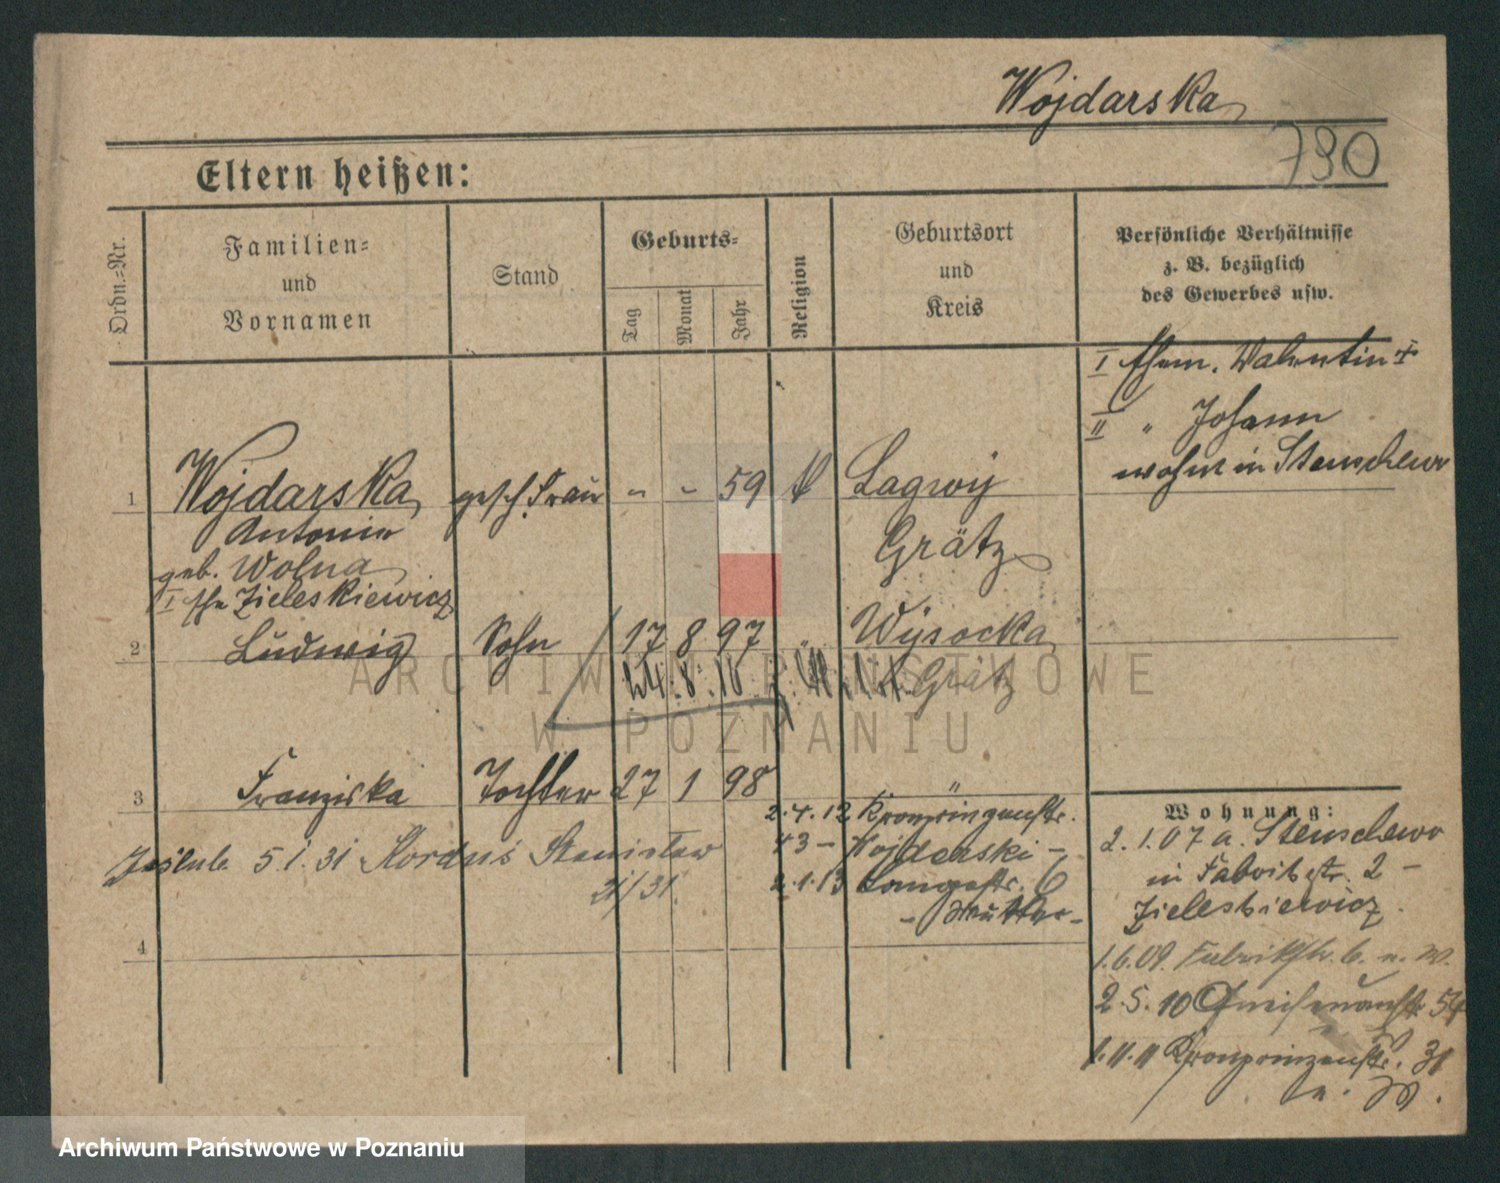 Wojdarska
790
Eltern heißen:
Ordn.=Nr.
Familien=
und
Vornamen
Stand
Geburts=
Tag
Monat
Jahr
Religion
Geburtsort
und
Kreis
Persönliche Verhältnisse
z. B. bezüglich
des Gewerbes usw.
I Ehem. Valentin +
II " Johann
wohnt in Stenschewo
1 Wojdarska gesch. Frau - - 59 k Lagwy
Antonie Grätz
geb. Wolna
I Ehe Zieleskiewicz
2 Ludwig Sohn 17 8 97 " Wysocka
Grätz
3 Franziska Tochter 27 1 98 "
2.4.12 Kronprinzenstr.
43 - Wojdarski -
5.1.31 Kordus Stanisław
21/31
2.1.13 Langestr. 6
- Mutter -
4
Wohnung:
2.1.07 a. Stenschewo
in Fabrikstr. 2 -
Zieleskiewicz
1.6.09 Fabrikstr. 6. n. W.
2.5.10 Gneisenaustr 54
1.11.11 Kronprinzenstr. 31
n. W.
ARCHIWUM PAŃSTWOWE
W POZNANIU
Archiwum Państwowe w Poznaniu